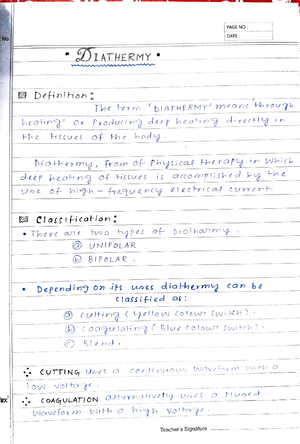 PAGE NO.:
DATE:
No
• DIATHERMY •
Definition:
The term "DIATHERMY" means "through
heating" or Producing deep heating directly in
the tissues of the body.
Diathermy, from of Physical therapy in Which
deep heating of tissues is accomplished by the
use of high-frequency electrical current.
Classification:
• There are two types of Diathermy.
a UNIPOLAR
b BIPOLAR.
• Depending on its uses diathermy can be
classified as:
a cutting (Yellow colour switch).
b coagulating (Blue colour switch).
c Blend.
CUTTING uses a continuous waveform with a
low voltage.
COAGULATION alternatively uses a Plused
waveform with a high voltage.
Teacher's Signature